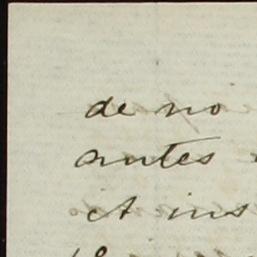 de no
antes
et ins